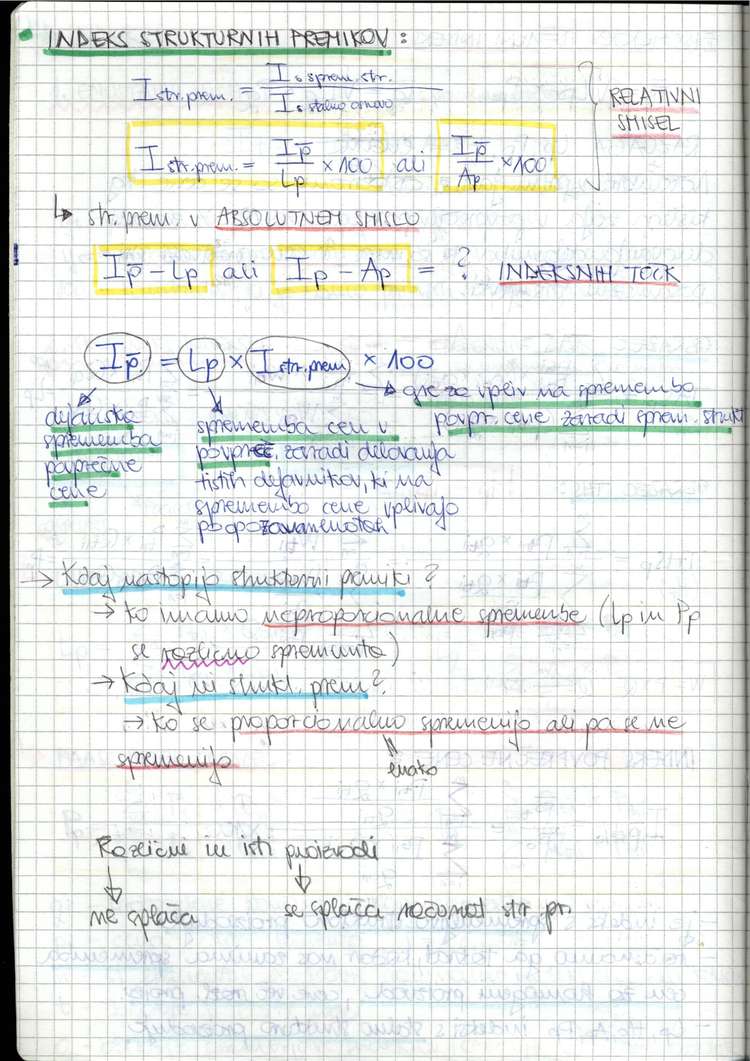 INDEKS STRUKTURNIH PREMIKOV :
I str.prem. = I s sprem. str. / I s stalno osnovo
RELATIVNI SMISEL
I str.prem. = Ip̅ / Lp × 100 ali Ip̅ / Ap × 100
↳ str. prem. v ABSOLUTNEM SMISLU
Ip̅ - Lp ali Ip - Ap = ? INDEKSNIH TOČK
Ip̅ = Lp × I str.prem × 100
→ gre za vpliv na spremembo
povpr. cene zaradi sprem. strukt
dejanska
sprememba
povprečne
cene
sprememba cen v
povpreč. zaradi delovanja
tistih dejavnikov, ki na
spremembo cene vplivajo
→ Kdaj nastopijo strukturni premiki ?
→ ko imamo neproporcionalne spremembe (Lp in Pp
se različno spreminta)
→ Kdaj ni strukt. prem ?
→ ko se proporcionalno spremenijo ali pa se ne
spremenijo
enako
Različni in isti proizvodi
ne splača
se splača računat str. pr.